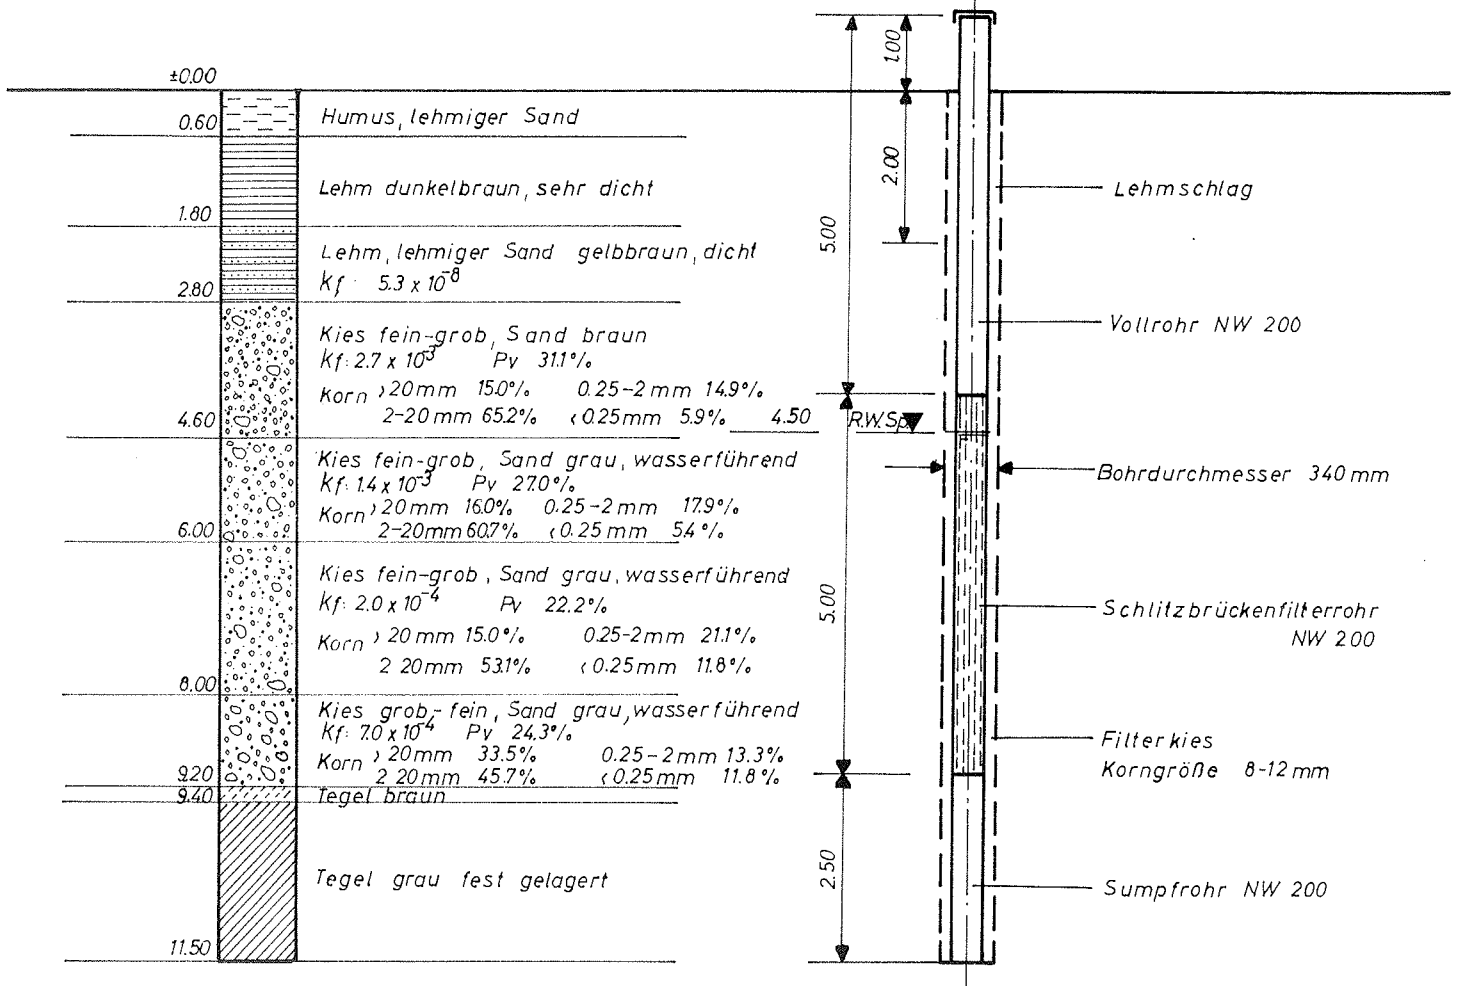 ±0.00
0.60
Humus, lehmiger Sand
Lehm dunkelbraun, sehr dicht
1.80
Lehm, lehmiger Sand gelbbraun, dicht
Kf 5.3 x 10⁻⁸
2.80
Kies fein-grob, Sand braun
Kf: 2.7 x 10⁻³ Pv 31.1%
Korn >20mm 15.0% 0.25-2mm 14.9%
2-20mm 65.2% <0.25mm 5.9%
4.60
Kies fein-grob, Sand grau, wasserführend
Kf: 1.4 x 10⁻³ Pv 27.0%
Korn >20mm 16.0% 0.25-2mm 17.9%
2-20mm 60.7% <0.25mm 5.4%
6.00
Kies fein-grob, Sand grau, wasserführend
Kf: 2.0 x 10⁻⁴ Pv 22.2%
Korn >20mm 15.0% 0.25-2mm 21.1%
2 20mm 53.1% <0.25mm 11.8%
8.00
Kies grob,-fein, Sand grau, wasserführend
Kf: 7.0 x 10⁻⁴ Pv 24.3%
Korn >20mm 33.5% 0.25-2mm 13.3%
2 20mm 45.7% <0.25mm 11.8%
9.20
9.40
Tegel braun
Tegel grau fest gelagert
11.50
1.00
2.00
5.00
4.50 R.W.Sp.
5.00
2.50
Lehmschlag
Vollrohr NW 200
Bohrdurchmesser 340mm
Schlitzbrückenfilterrohr
NW 200
Filterkies
Korngröße 8-12mm
Sumpfrohr NW 200